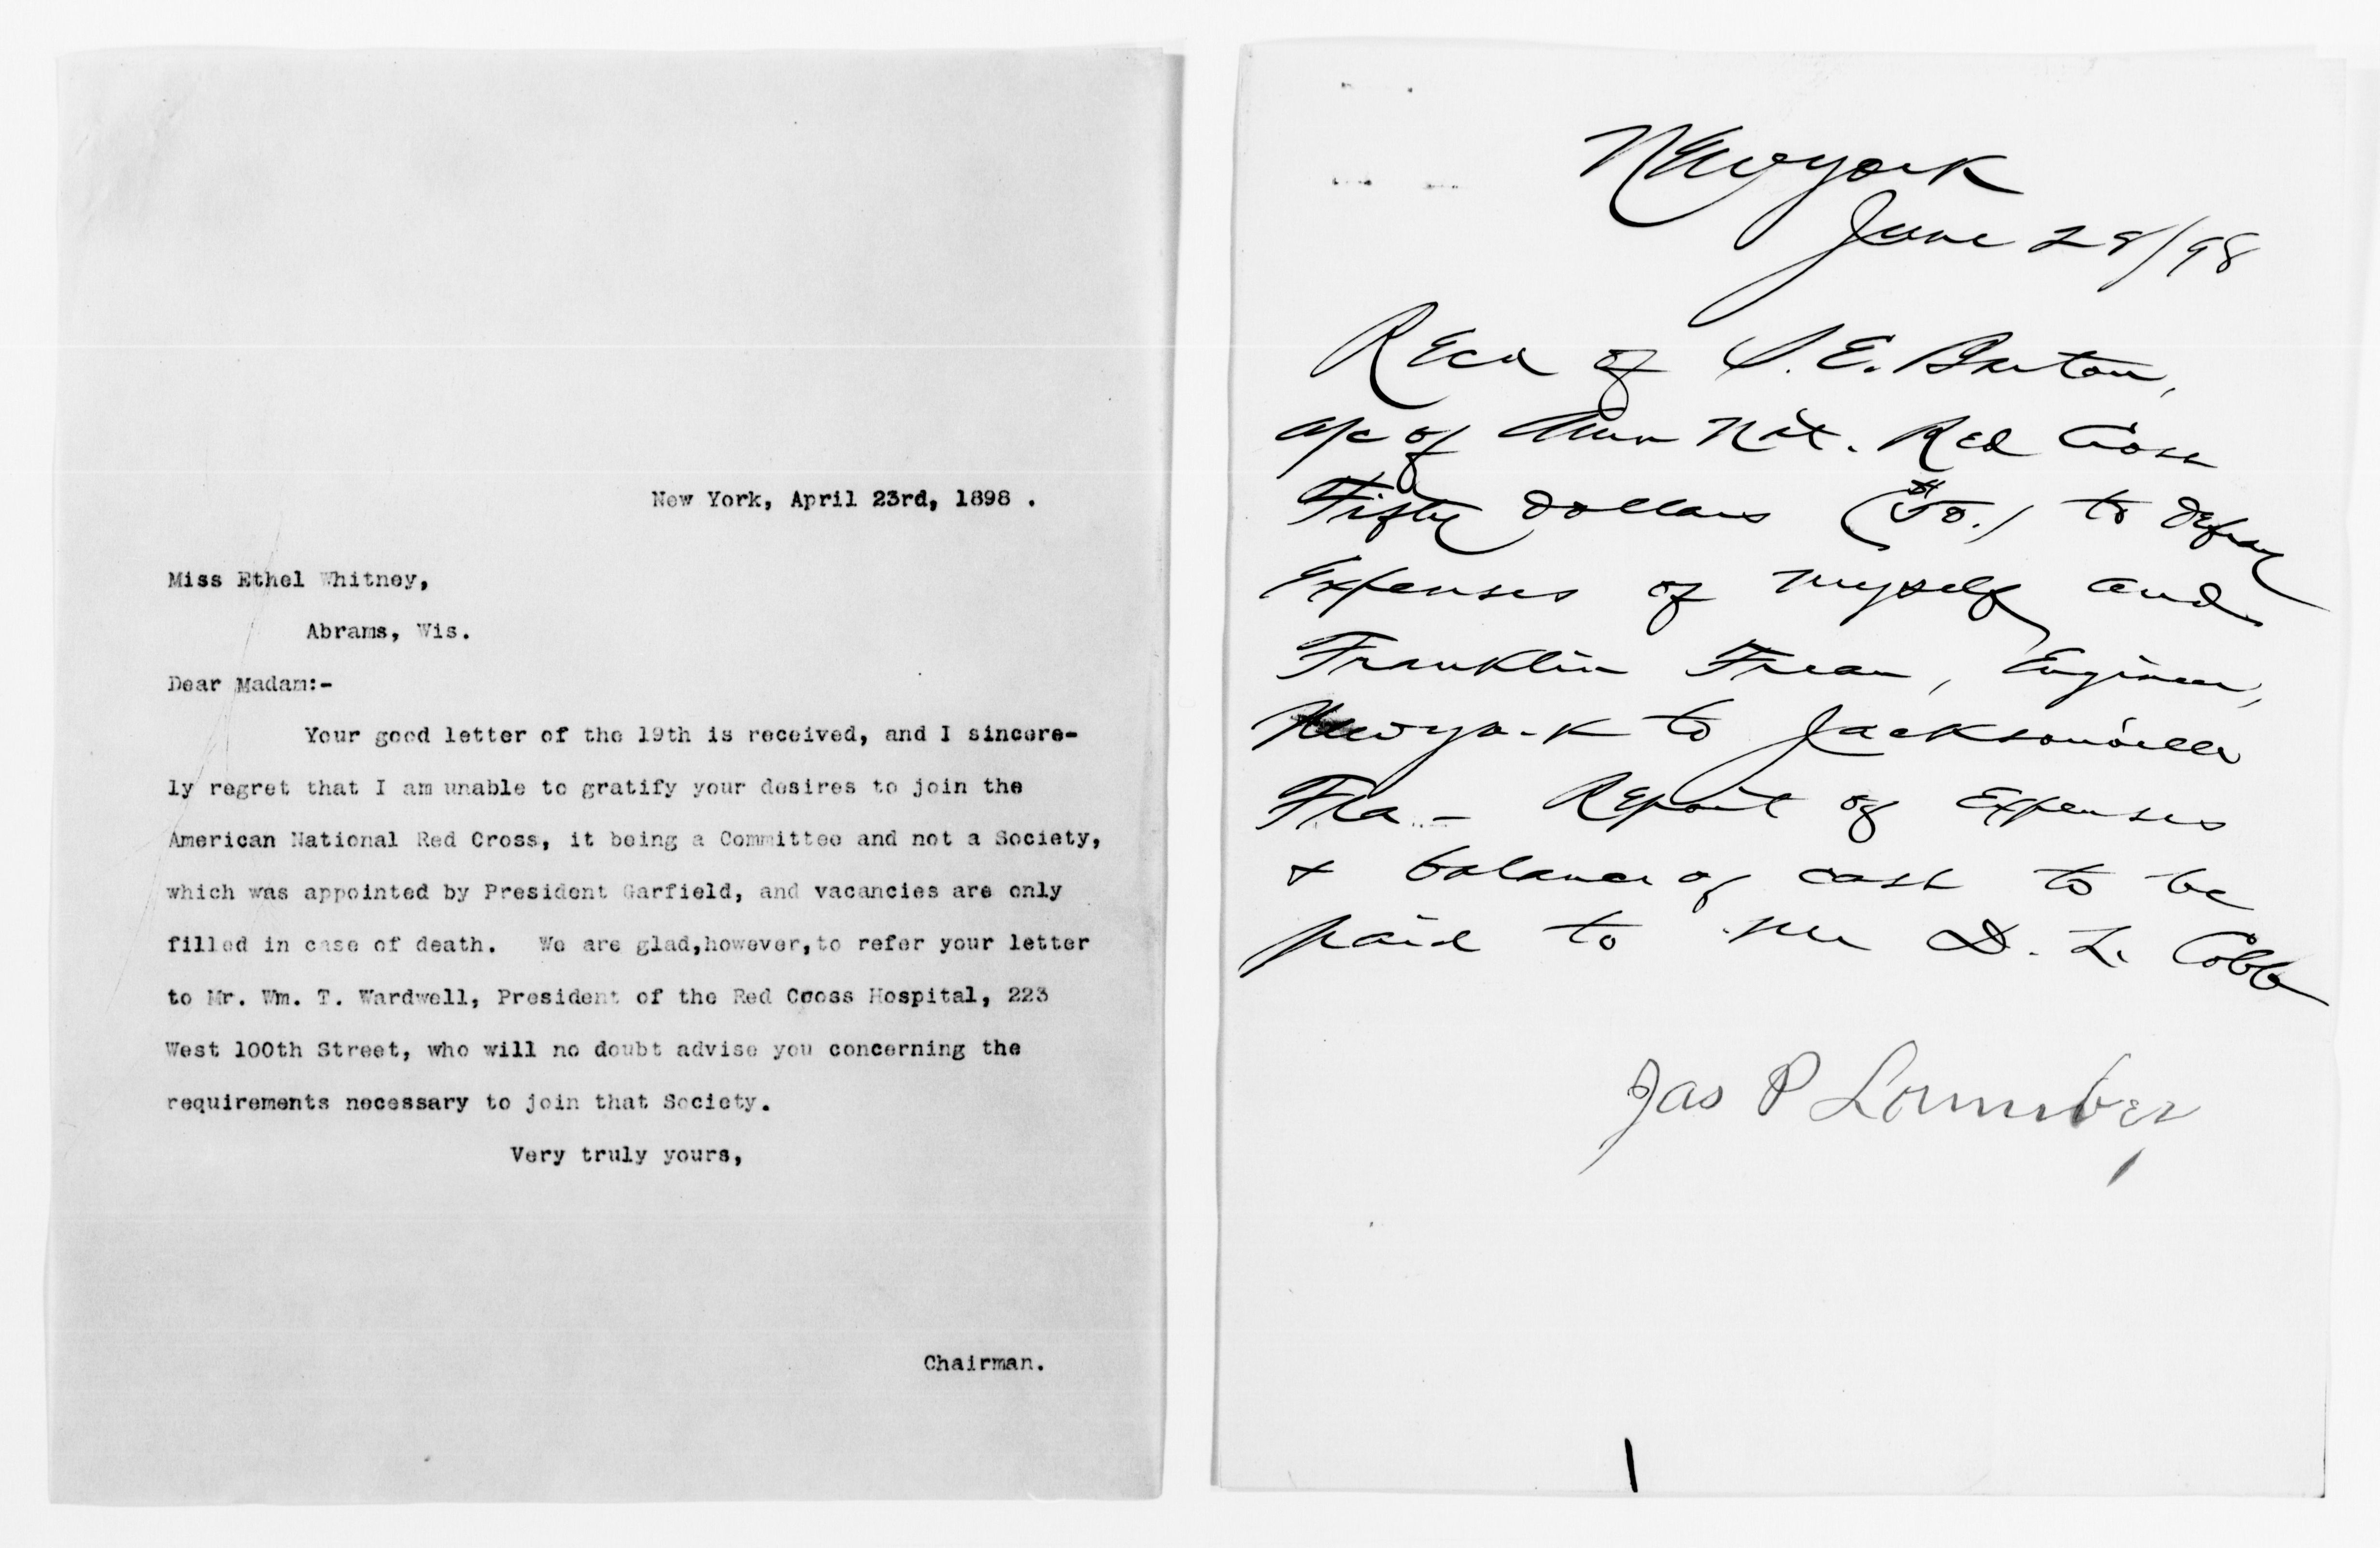 New York, April 23rd, 1898 .
Miss Ethel Whitney,
Abrams, Wis.
Dear Madam:-
Your good letter of the 19th is received, and I sincere-
ly regret that I am unable to gratify your desires to join the
American National Red Cross, it being a Committee and not a Society,
which was appointed by President Garfield, and vacancies are only
filled in case of death. We are glad,however,to refer your letter
to Mr. Wm. T. Wardwell, President of the Red Cross Hospital, 223
West 100th Street, who will no doubt advise you concerning the
requirements necessary to join that Society.
Very truly yours,
Chairman.
New York
June 28/98
Recd of S. E. Barton,
a/c of Amn Nat. Red Cross
Fifty dollars ($50.) to defray
Expenses of myself and
Franklin, Engineer,
New York to Jacksonville
Fla - Report of Expenses
& balance of cash to be
paid to Mr D. L. Cobb
Jas P